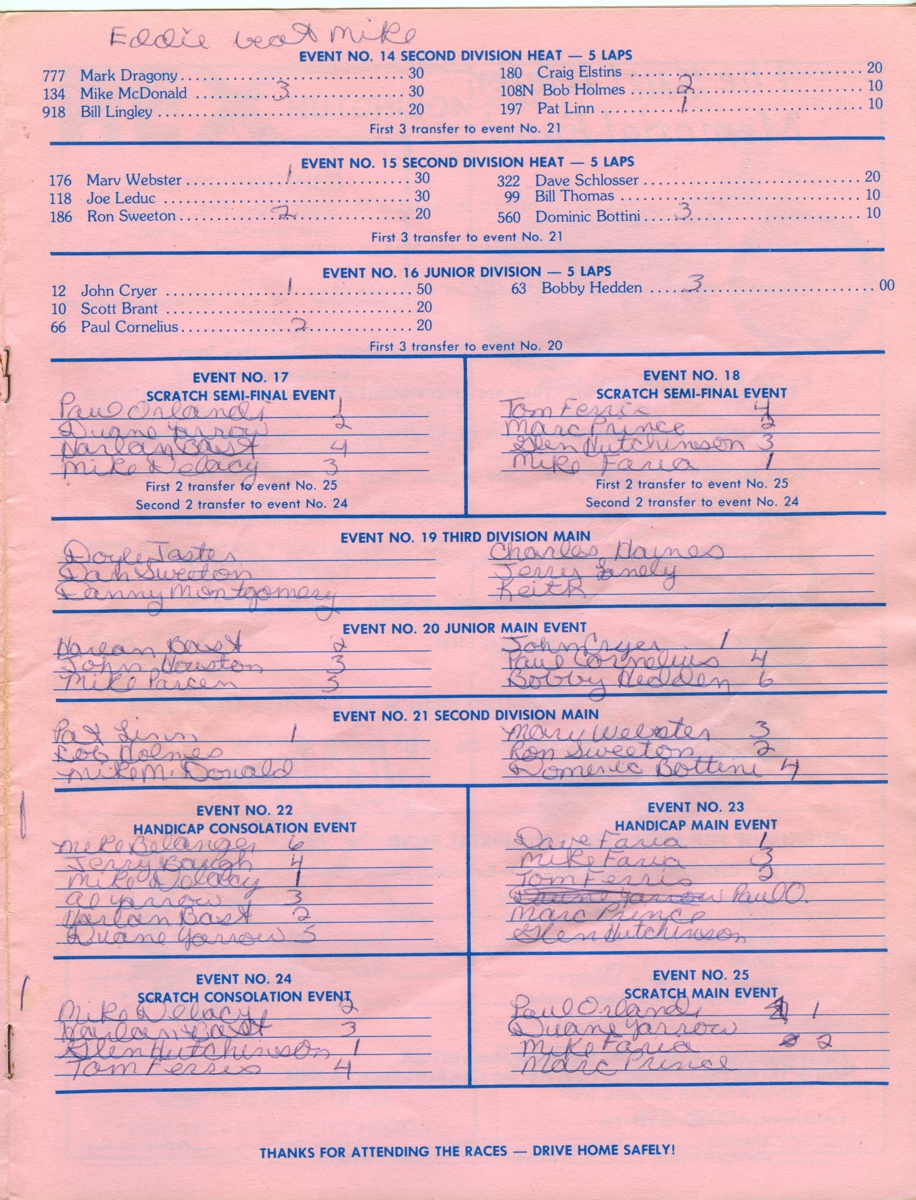 Eddie beat Mike
EVENT NO. 14 SECOND DIVISION HEAT — 5 LAPS
777 Mark Dragony 30
134 Mike McDonald 3 30
918 Bill Lingley 20
180 Craig Elstins 20
108N Bob Holmes 2 10
197 Pat Linn 1 10
First 3 transfer to event No. 21
EVENT NO. 15 SECOND DIVISION HEAT — 5 LAPS
176 Marv Webster 1 30
118 Joe Leduc 30
186 Ron Sweeton 2 20
322 Dave Schlosser 20
99 Bill Thomas 10
560 Dominic Bottini 3 10
First 3 transfer to event No. 21
EVENT NO. 16 JUNIOR DIVISION — 5 LAPS
12 John Cryer 1 50
10 Scott Brant 20
66 Paul Cornelius 2 20
63 Bobby Hedden 3 00
First 3 transfer to event No. 20
EVENT NO. 17
SCRATCH SEMI-FINAL EVENT
Paul Orlandi 1
Duane Yarrow 2
Harlan Bast 4
Mike Delacy 3
First 2 transfer to event No. 25
Second 2 transfer to event No. 24
EVENT NO. 18
SCRATCH SEMI-FINAL EVENT
Tom Ferris 4
Marc Prince 2
Glen Hutchinson 3
Mike Faria 1
First 2 transfer to event No. 25
Second 2 transfer to event No. 24
EVENT NO. 19 THIRD DIVISION MAIN
Doyle Taster
Dan Sweeton
Danny Montgomery
Charles Haynes
Jerry
Keith
EVENT NO. 20 JUNIOR MAIN EVENT
Harlan Bast 2
John Houston 3
Mike Parcen 5
John Cryer 1
Paul Cornelius 4
Bobby Hedden 6
EVENT NO. 21 SECOND DIVISION MAIN
Pat Linn 1
Bob Holmes
Mike McDonald
Marv Webster 3
Ron Sweeton 2
Domenic Bottini 4
EVENT NO. 22
HANDICAP CONSOLATION EVENT
Mike Belanger 6
Jerry Baugh 4
Mike Delacy 1
Al Yarrow 3
Harlan Bast 2
Duane Yarrow 5
EVENT NO. 23
HANDICAP MAIN EVENT
Dave Faria 1
Mike Faria 3
Tom Ferris 2
Duane Yarrow Paul O.
Marc Prince
Glen Hutchinson
EVENT NO. 24
SCRATCH CONSOLATION EVENT
Mike Delacy 2
Harlan Bast 3
Glen Hutchinson 1
Tom Ferris 4
EVENT NO. 25
SCRATCH MAIN EVENT
Paul Orlandi 1
Duane Yarrow
Mike Faria 2
Marc Prince
THANKS FOR ATTENDING THE RACES — DRIVE HOME SAFELY!